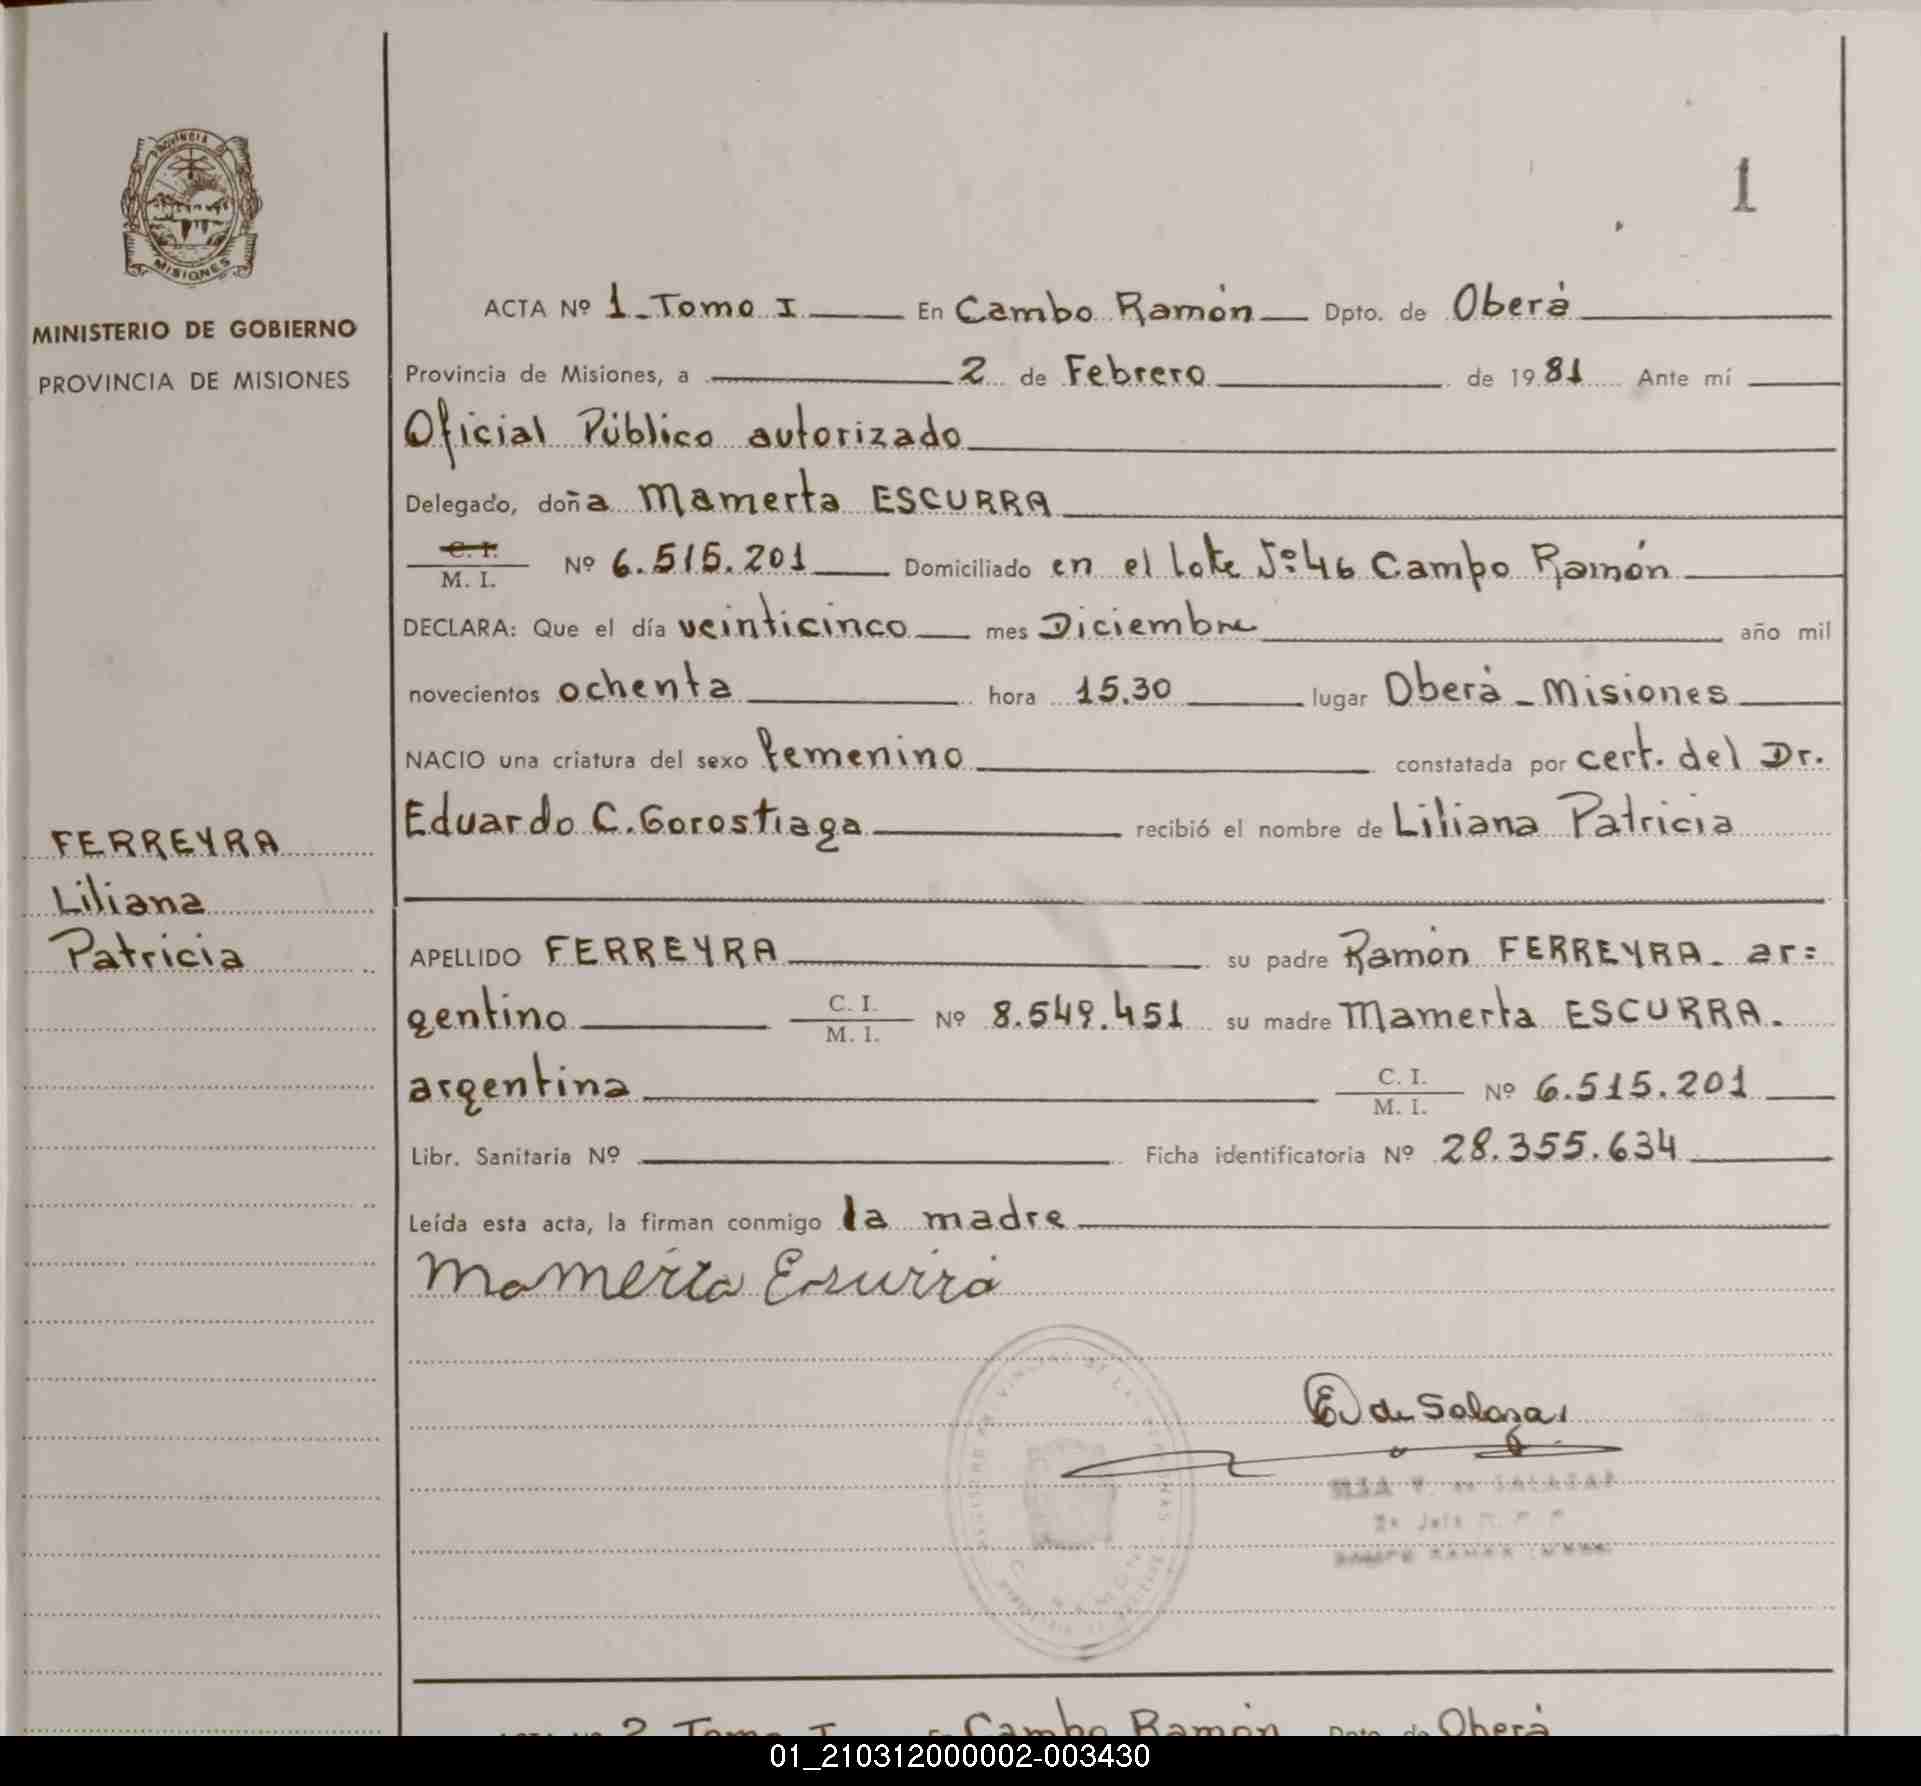 PROVINCIA D
MISIONES
MINISTERIO DE GOBIERNO
PROVINCIA DE MISIONES
FERREYRA
Liliana
Patricia
1
ACTA Nº 1 - Tomo I En Cambo Ramón Dpto. de Oberá
Provincia de Misiones, a 2 de Febrero de 1981 Ante mí
Oficial Público autorizado
Delegado, doña Mamerta ESCURRA
C. I.
M. I. Nº 6.515.201 Domiciliado en el lote Nº 46 Campo Ramón
DECLARA: Que el día veinticinco mes Diciembre año mil
novecientos ochenta hora 15.30 lugar Oberá - Misiones
NACIO una criatura del sexo femenino constatada por cert. del Dr.
Eduardo C. Gorostiaga recibió el nombre de Liliana Patricia
APELLIDO FERREYRA su padre Ramón FERREYRA - ar=
gentino C. I. M. I. Nº 8.549.451 su madre Mamerta ESCURRA.
argentina C. I. M. I. Nº 6.515.201
Libr. Sanitaria Nº Ficha identificatoria Nº 28.355.634
Leída esta acta, la firman conmigo la madre
Mamerta Escurra
E. de Salazar
de SALAZAR
ACTA Nº 2 Tomo I En Cambo Ramón Dpto. de Oberá
01_210312000002-003430